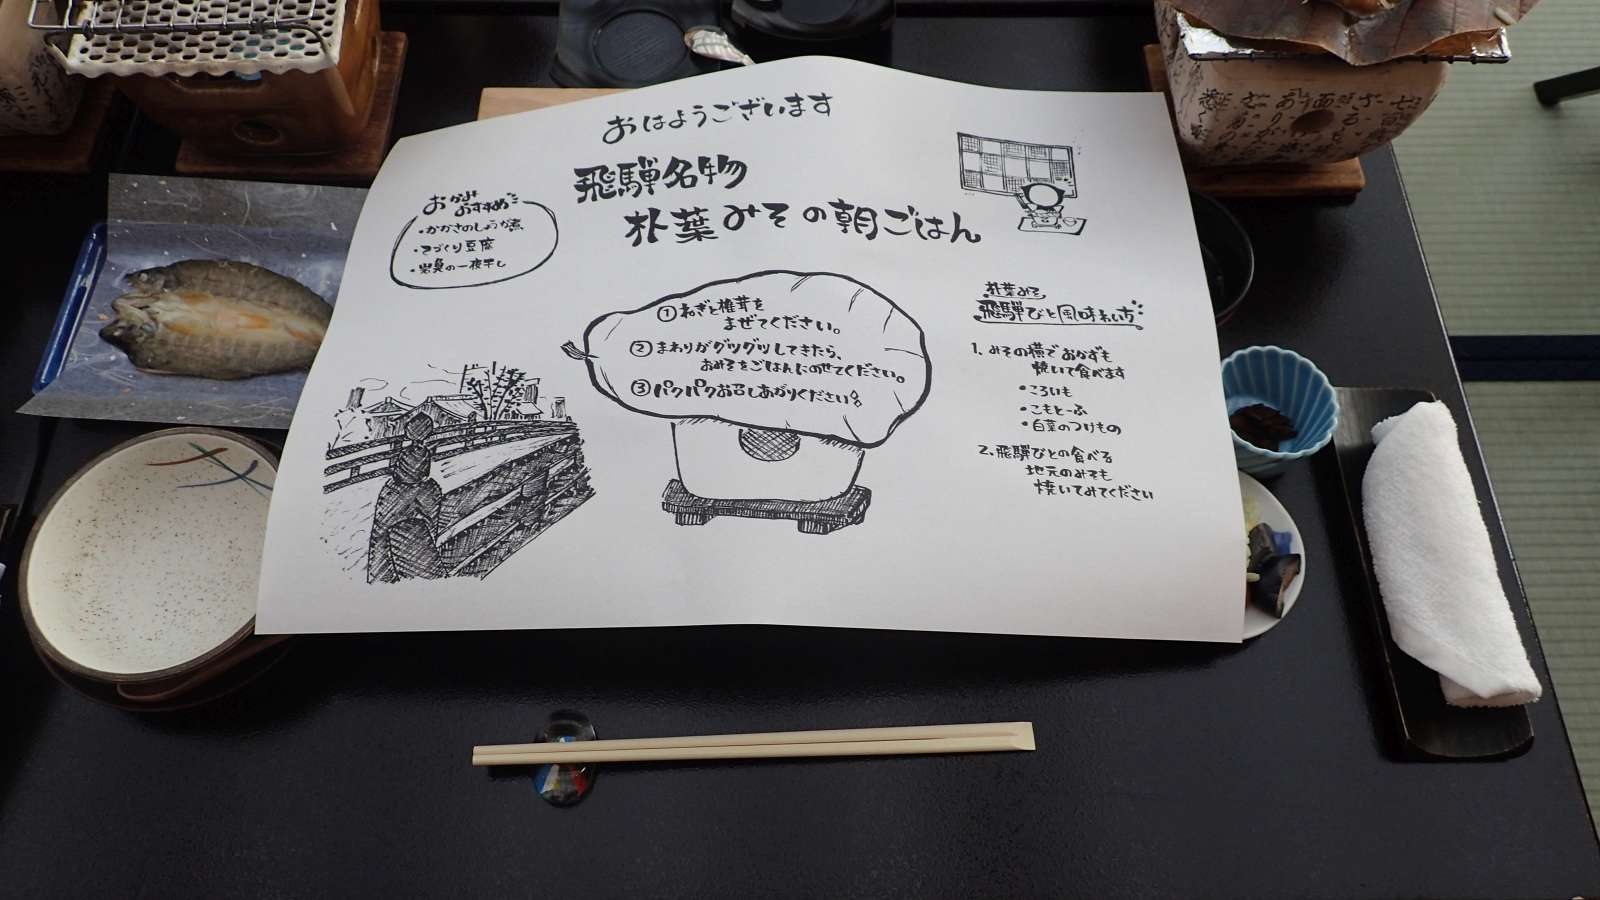 おはようございます
飛騨名物
朴葉みその朝ごはん
おかみ
おすすめ
・てづくり豆腐
・岩魚の一夜干し
①ねぎと椎茸を
まぜてください。
②まわりがグツグツしてきたら、
おみそをごはんにのせてください。
③パクパクお召しあがりください
朴葉みそ
飛騨びと風味わい方
1、みその横でおかずも
焼いて食べます
・ころいも
・こもとーふ
・白菜のつけもの
2、飛騨びとの食べる
地元のみそも
焼いてみてください